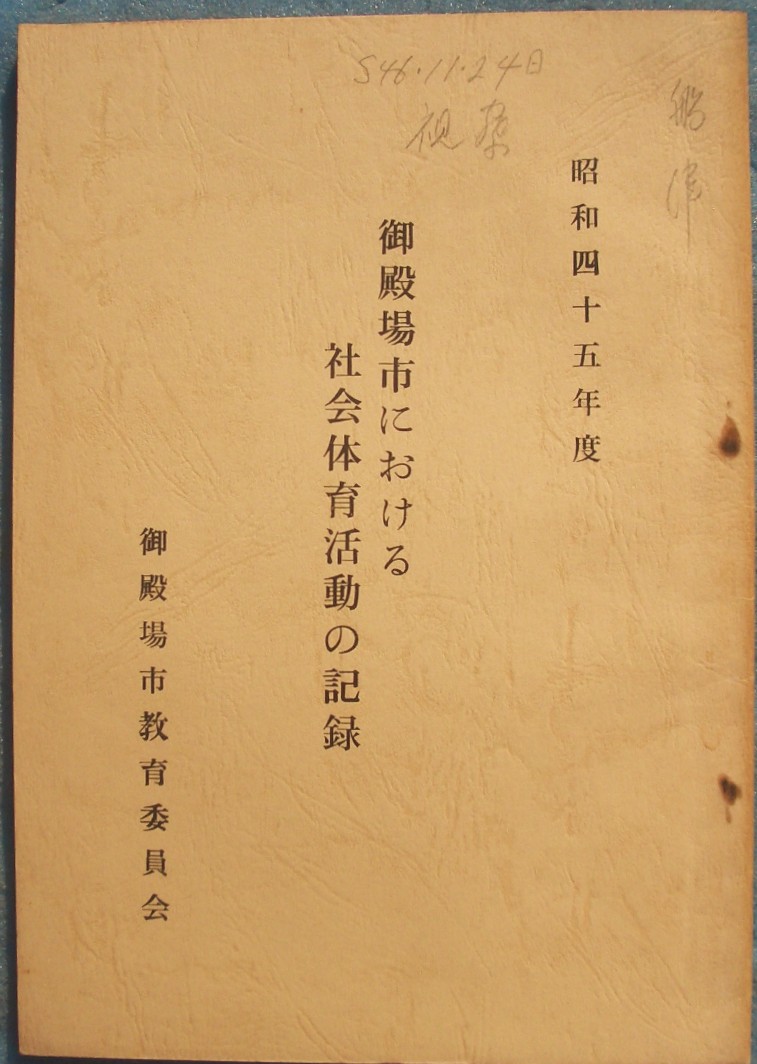 S46.11.24日
視察
船津
昭和四十五年度
御殿場市における
社会体育活動の記録
御殿場市教育委員会